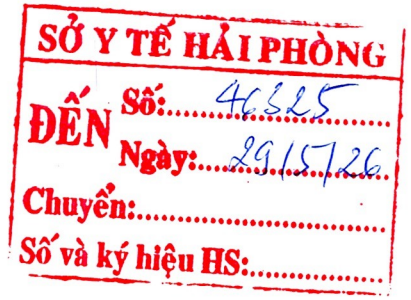 SỞ Y TẾ HẢI PHÒNG
ĐẾN
Số: 46325
Ngày: 29/5/26
Chuyển:
Số và ký hiệu HS: